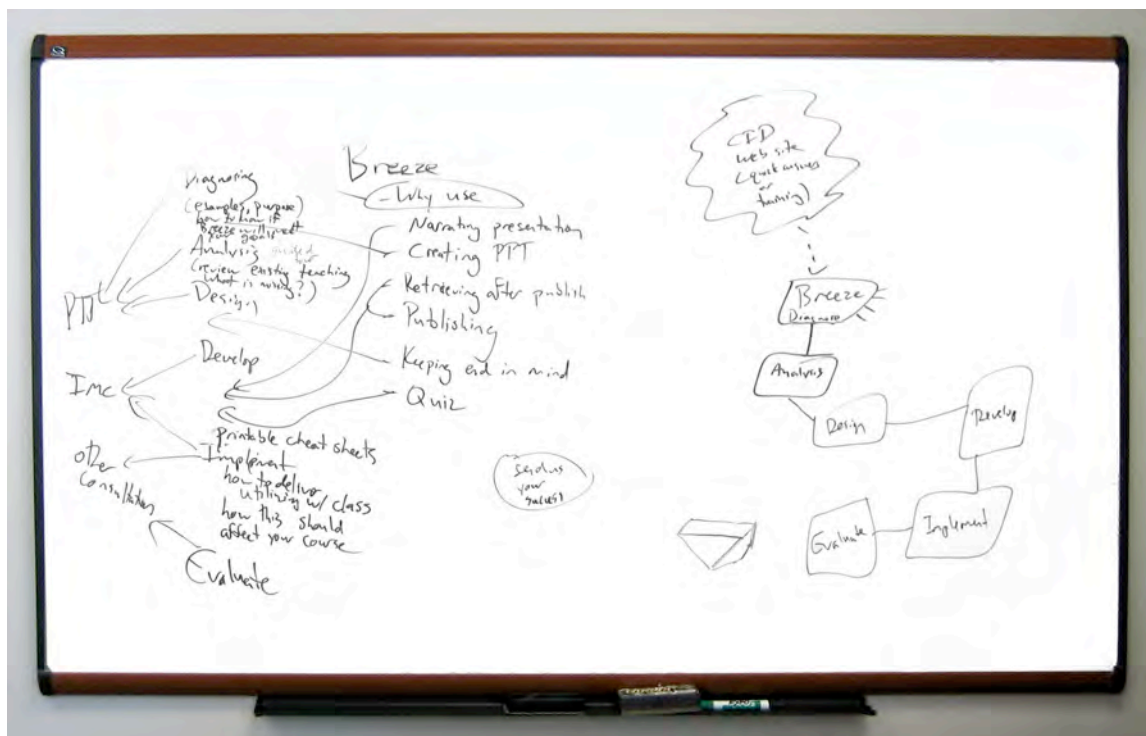 Diagnosing
(examples, purpose)
how to know if
Breeze will meet
your goals
Analysis
(review existing teaching
what is missing?)
Design
PTT
Develop
IMC
printable cheat sheets
Implement
how to deliver
utilizing w/ class
how this should
affect your course
other
Consultation
Evaluate
Breeze
- Why use
Narrating presentation
Creating PPT
Retrieving after publish
Publishing
Keeping end in mind
Quiz
send us
your
success
CID
web site
(quick answers
or
training)
Breeze
Diagnose
Analysis
Design
Develop
Implement
Evaluate